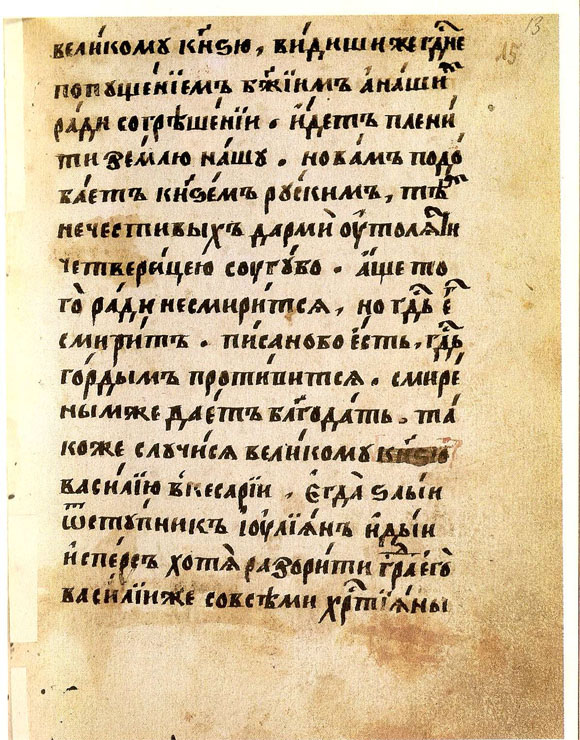 13
15
вели́кому кн҃ѕю, ви́диши же гⷭ҇дне
попꙋще́нїемъ бж҃їимъ а на́ши
ра́ди согрѣше́нїи . и́детъ плени́
ти зе́млю на́шꙋ . но ва́мъ подо́
ба́етъ кнѕе́мъ рꙋ́скимъ, тѣⷯ
нечести́выхъ дарми̂ ᲂу҆толѧ́ти
четвери́цею соугꙋ́бо . а́ще то
го̀ ра́ди не смири́тсѧ, но гдⷭ҇ь е҆̀
смири́тъ . пи́сано бо е́сть, гдⷭ҇ь
го́рдымъ проти́витсѧ . смире́
ным же дае́тъ блг҃ода́ть . та́
коже слꙋчи́сѧ вели́кому кн҃ѕю
васи́лїю в кесарі́и . є҆гда̀ ѕлы́и
ѿстꙋ́пникъ і҆ᲂулїѧ́нъ и́дыи
и҆с пе́рсъ хотѧ̀ разори́ти гра́ е҆го̀
васи́лїи же со всѣ́ми хрⷭ҇тїѧ́ны